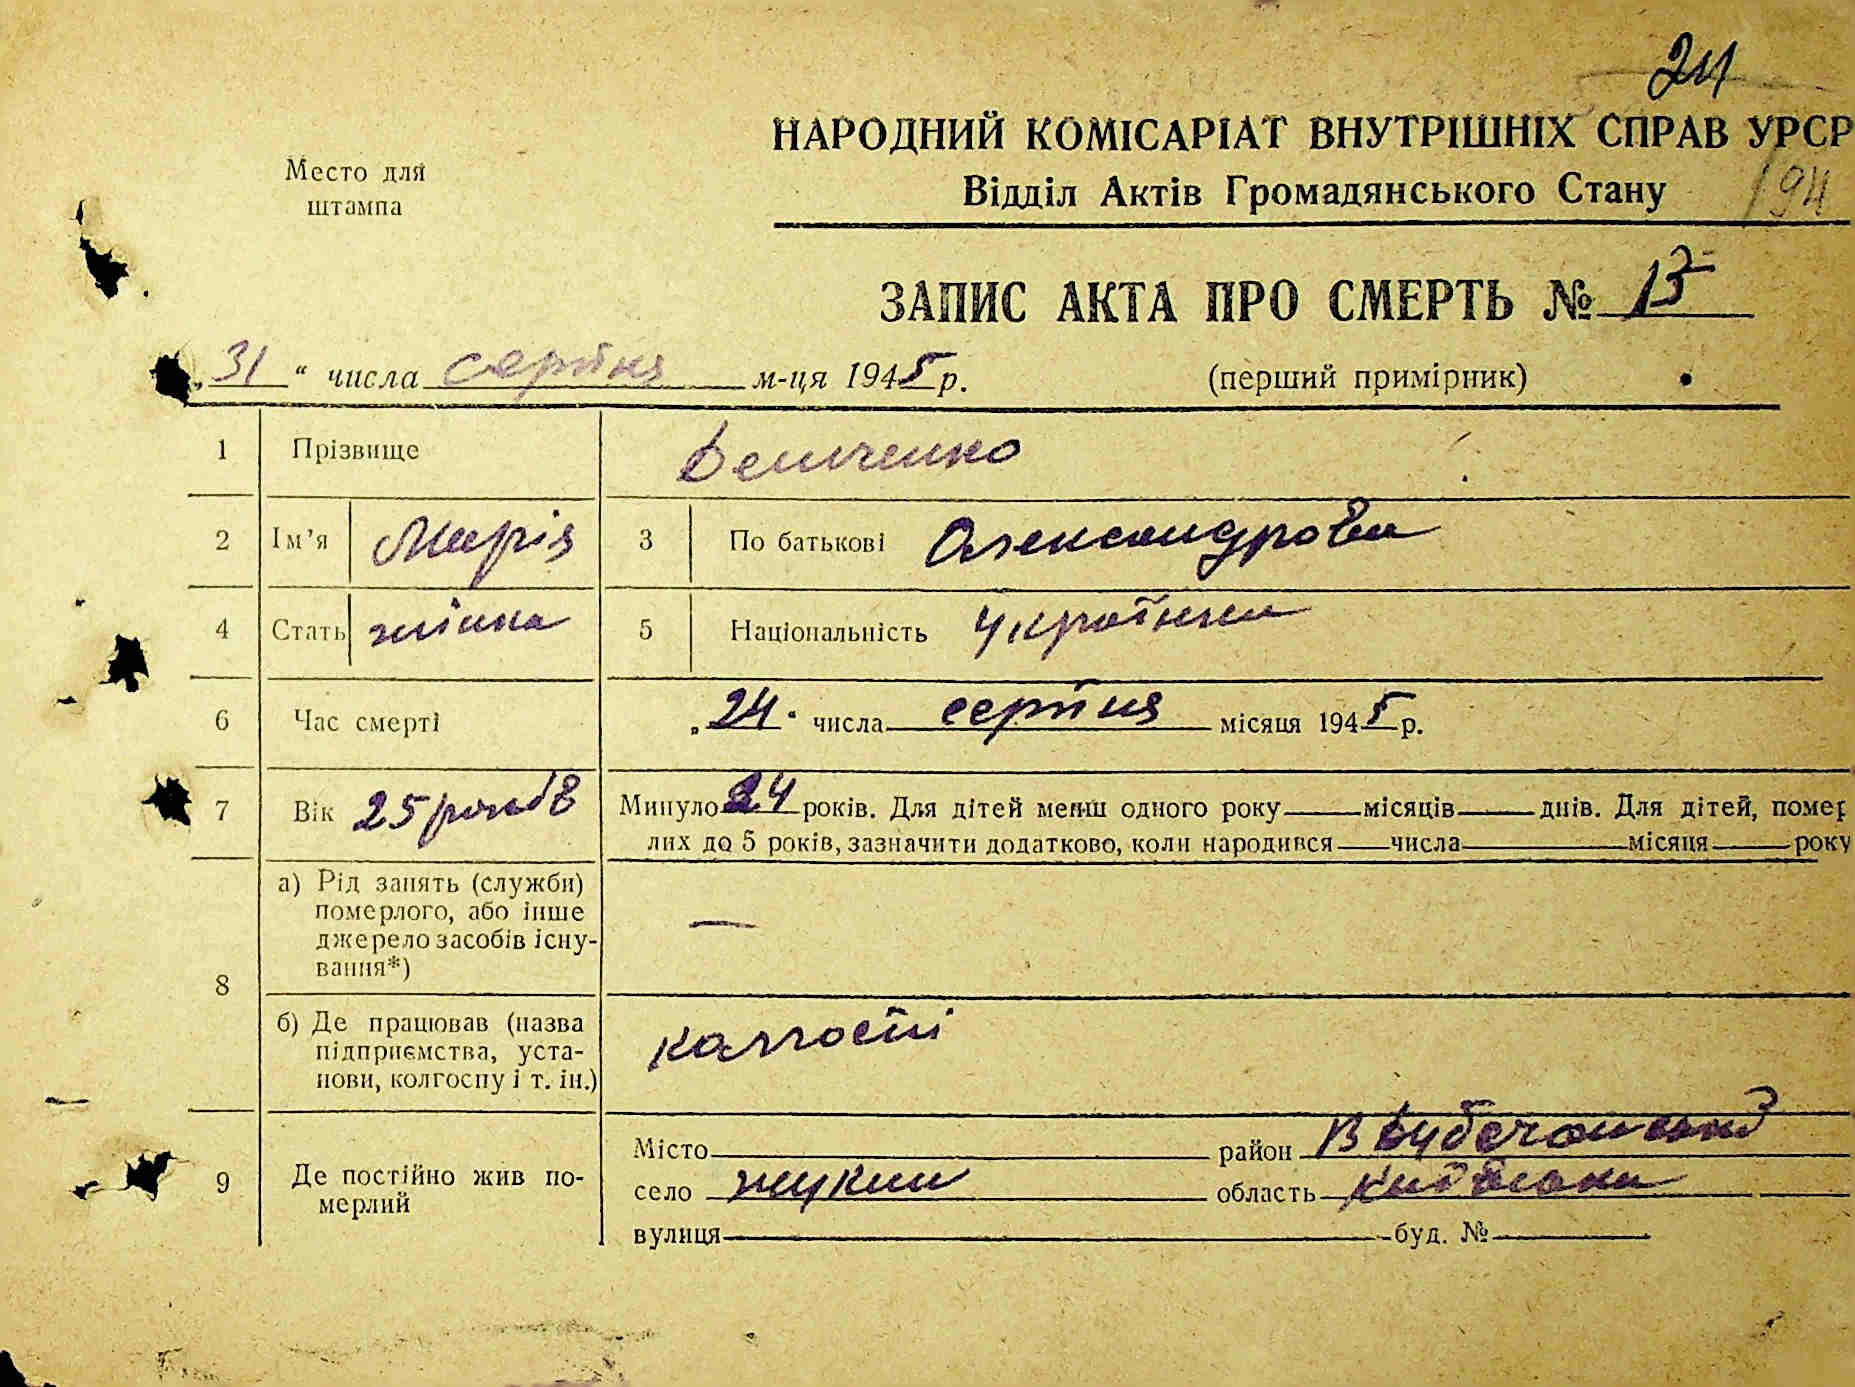 24
НАРОДНИЙ КОМІСАРІАТ ВНУТРІШНІХ СПРАВ УРСР
Место для штампа
Відділ Актів Громадянського Стану
194
ЗАПИС АКТА ПРО СМЕРТЬ № 13
„31“ числа серпня м-ця 1945 р.
(перший примірник)
1 Прізвище
2 Ім’я Марія 3 По батькові Олександровна
4 Стать жінка 5 Національність Українка
6 Час смерті „24“ числа серпня місяця 1945 р.
7 Вік 25 років Минуло 24 років. Для дітей менш одного року місяців днів. Для дітей, помер
лих до 5 років, зазначити додатково, коли народився числа місяця року
8 а) Рід занять (служби)
померлого, або інше
джерело засобів існу-
вання*) —
б) Де працював (назва
підприємства, уста-
нови, колгоспу і т. ін.) колгоспі
9 Де постійно жив по-
мерлий
Місто район
село Жукин область Київська
вулиця буд. №